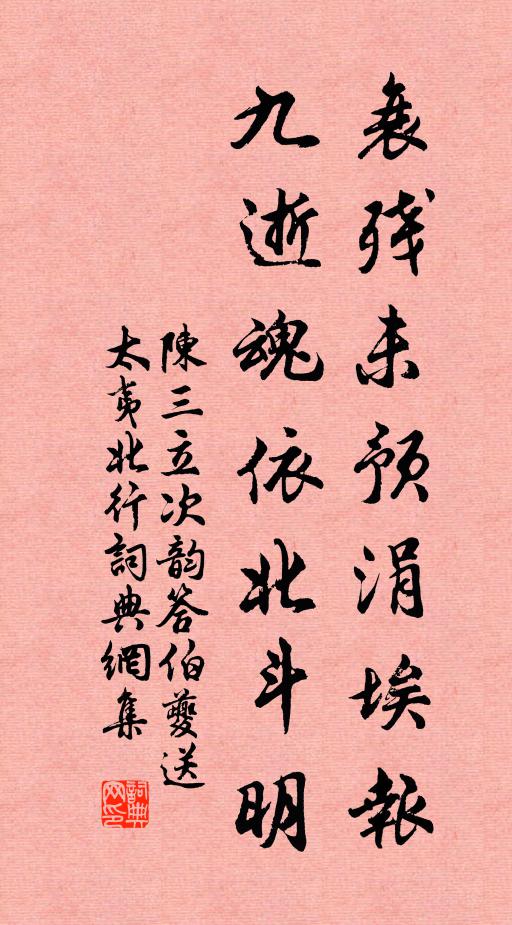 衰残未预涓埃報
九逝魂依北斗明
陳三立次韵答伯夔送
太夷北行詞典網集
詞典网印